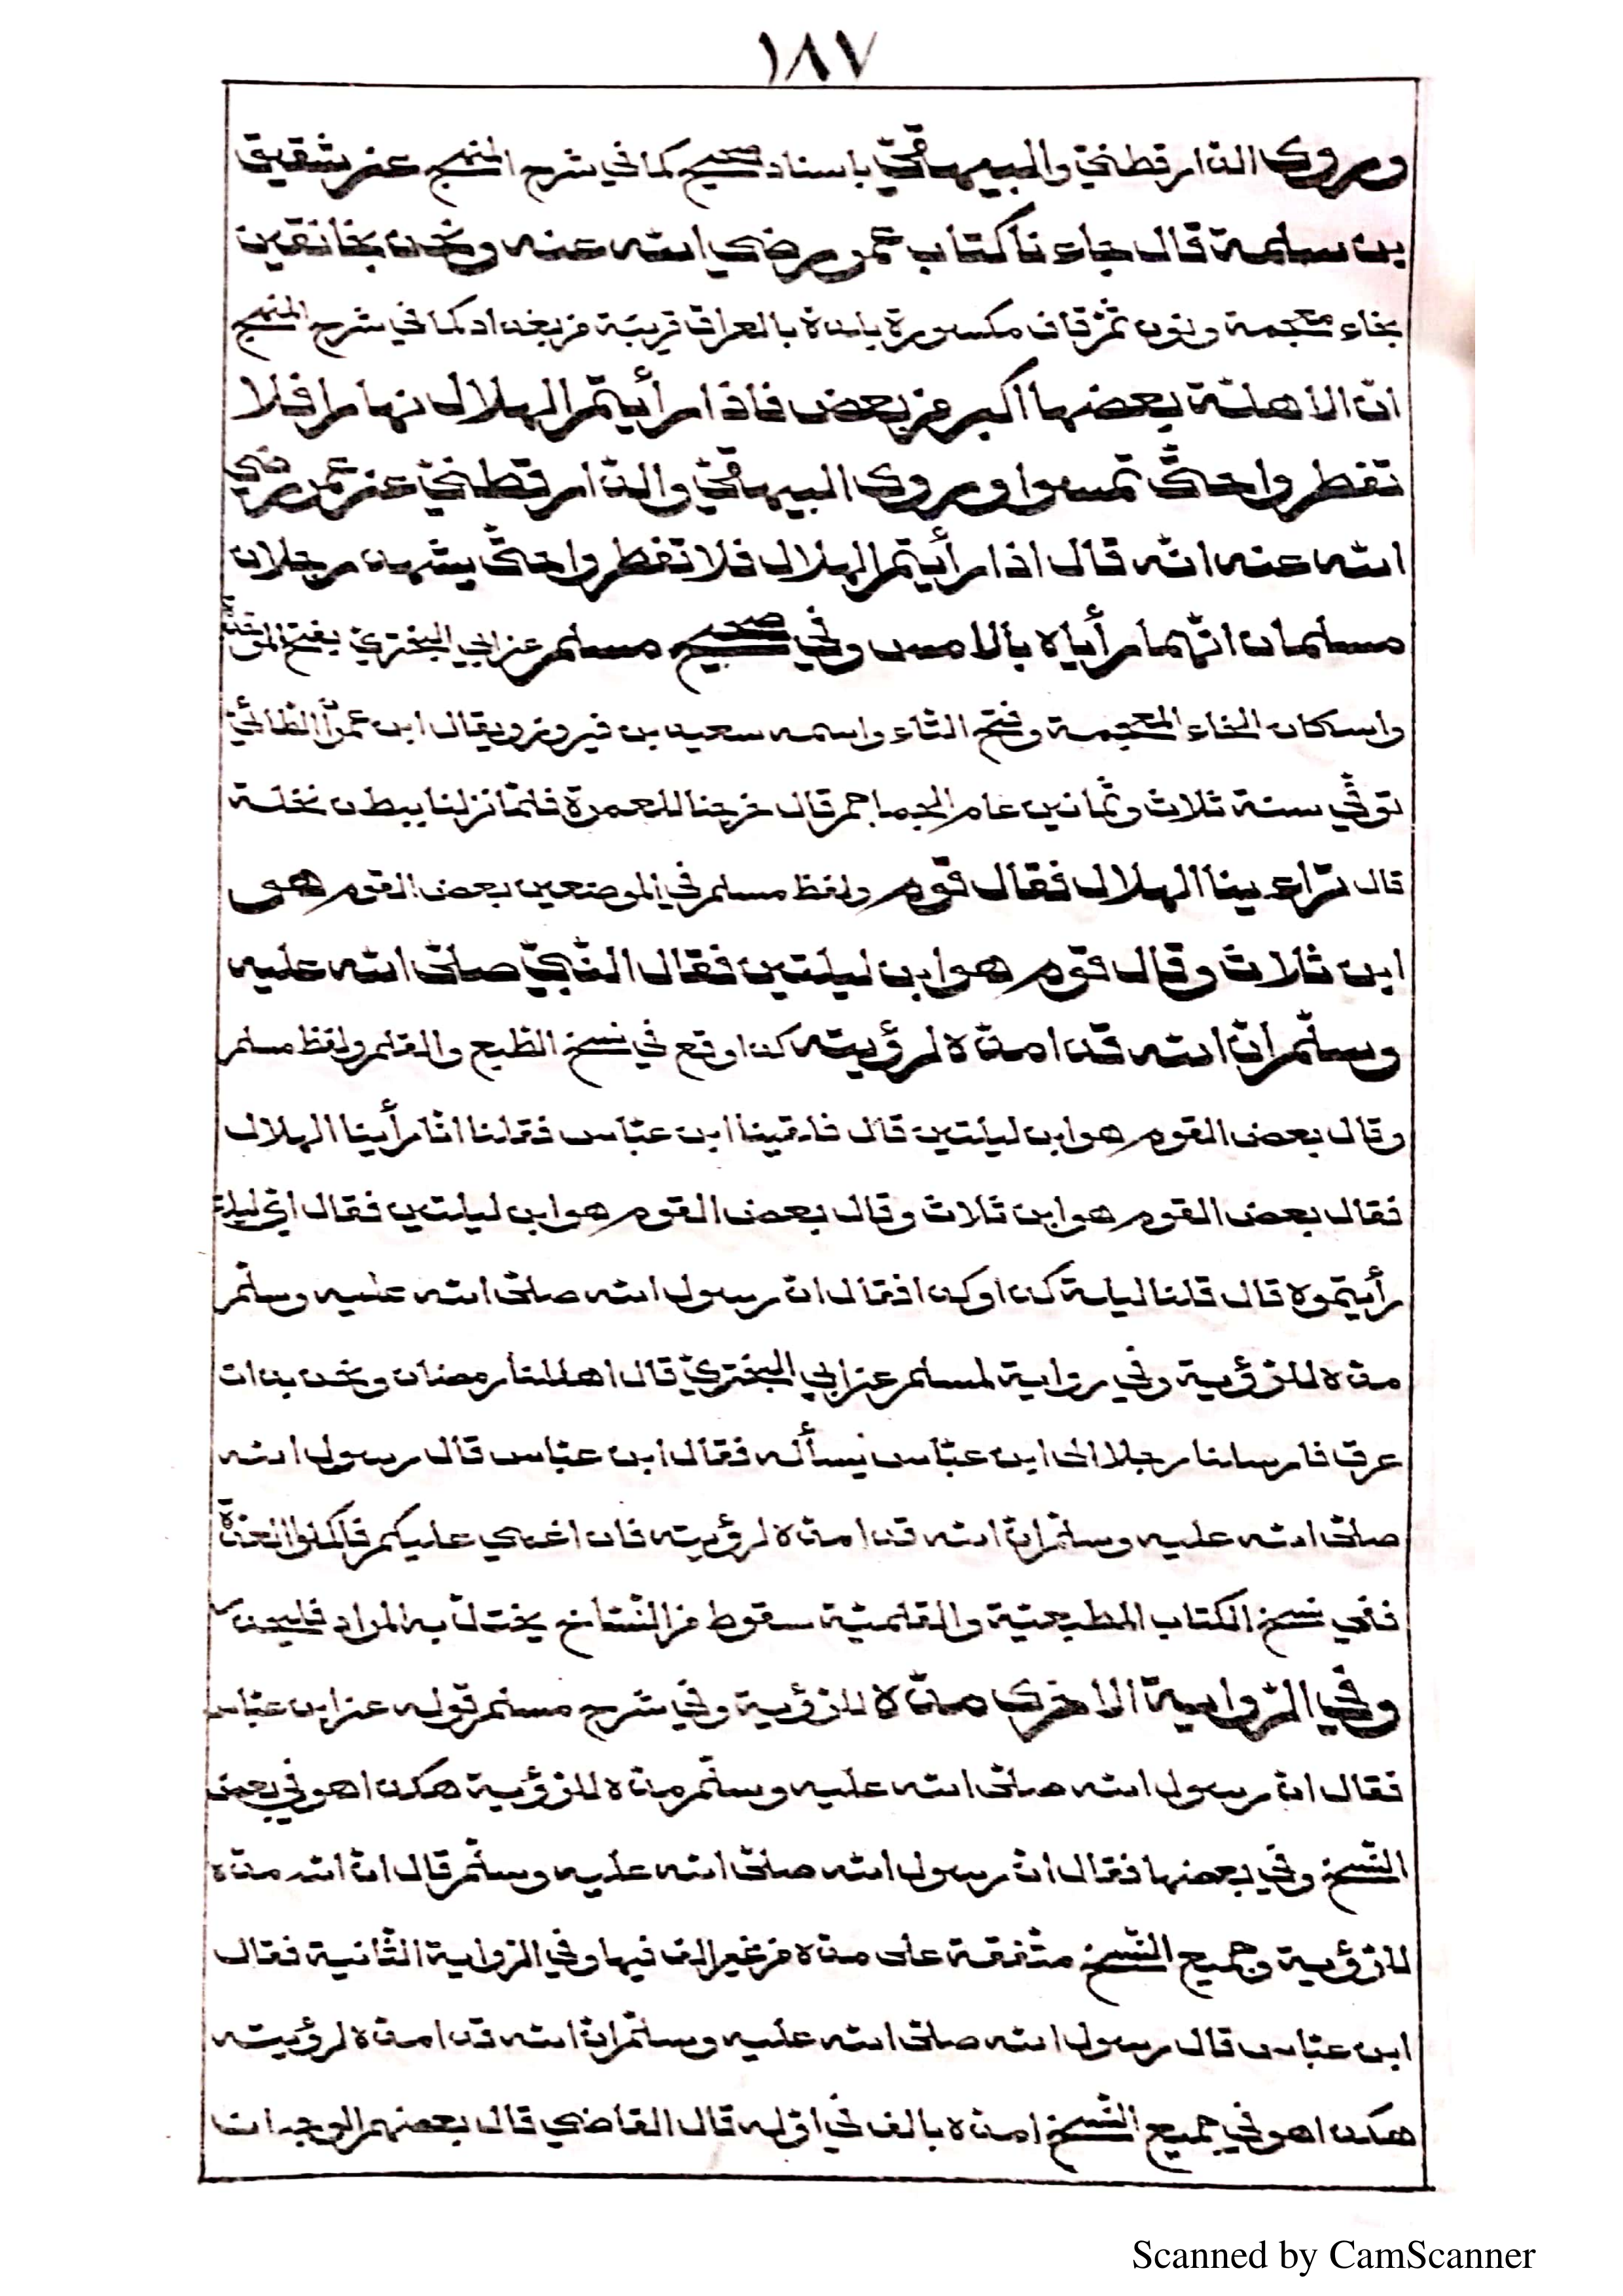 ١٨٧
وروى الدّارقطنيّ والبيهقيّ باسناد صحيح كما في شرح المنهج عن شقيق
بن سلمة قال جاءنا كتاب عمر رضي الله عنه ونحن بخانقين
بخاء معجمة ونون ثمّ قاف مكسورة بلدة بالعراق قريبة من بغداد كما في شرح المنهج
انّ الاهلّة بعضها اكبر من بعض فاذا رأيتم الهلال نهارا فلا
تفطروا حتّى تمسوا وروى البيهقيّ والدّارقطنيّ عن عمر رضي
الله عنه انّه قال اذا رأيتم الهلال فلا تفطروا حتّى يشهد رجلان
مسلمان انّهما رأياه بالامس وفي صحيح مسلم عن ابي البختريّ بفتح الموحّدة
واسكان الخاء المعجمة وفتح التاء واسمه سعيد بن فيروز ويقال ابن عمران الطائيّ
توفّي سنة ثلاث وثمانين عام الجماجم قال خرجنا للعمرة فلمّا نزلنا ببطن نخلة
قال تراءينا الهلال فقال قوم ولفظ مسلم في الموضعين بعض القوم هو
ابن ثلاث وقال قوم هو ابن ليلتين فقال النّبيّ صلّى الله عليه
وسلّم انّ الله قد امدّه لرؤيته كذا وقع في نسخ الطّبع والقلم ولفظ مسلم
وقال بعض القوم هو ابن ليلتين قال فلقينا ابن عبّاس فقلنا انّا رأينا الهلال
فقال بعض القوم هو ابن ثلاث وقال بعض القوم هو ابن ليلتين فقال ايّ ليلة
رأيتموه قال قلنا ليلة كذا وكذا فقال انّ رسول الله صلّى الله عليه وسلّم
مدّه للرّؤية وفي رواية لمسلم عن ابي البختريّ قال اهللنا رمضان ونحن بذات
عرق فارسلنا رجلا الى ابن عبّاس يسأله فقال ابن عبّاس قال رسول الله
صلّى الله عليه وسلّم انّ الله قد امدّه لرؤيته فان اغمي عليكم فاكملوا العدّة
ففي نسخ الكتاب المطبعيّة والقلميّة سقوط من النّسّاخ يختلّ به المراد
وفي الرّواية الاخرى مدّه للرّؤية وفي شرح مسلم قوله عن ابن عبّاس
فقال انّ رسول الله صلّى الله عليه وسلّم مدّه للرّؤية هكذا هو في بعض
النّسخ وفي بعضها فقال انّ رسول الله صلّى الله عليه وسلّم قال انّ الله مدّه
للرّؤية وجميع النّسخ متّفقة على مدّه من غير الف فيها وفي الرّواية الثّانية فقال
ابن عبّاس قال رسول الله صلّى الله عليه وسلّم انّ الله قد امدّه لرؤيته
هكذا هو في جميع النّسخ امدّه بالف في اوّله قال القاضي قال بعضهم الوجه ان
Scanned by CamScanner